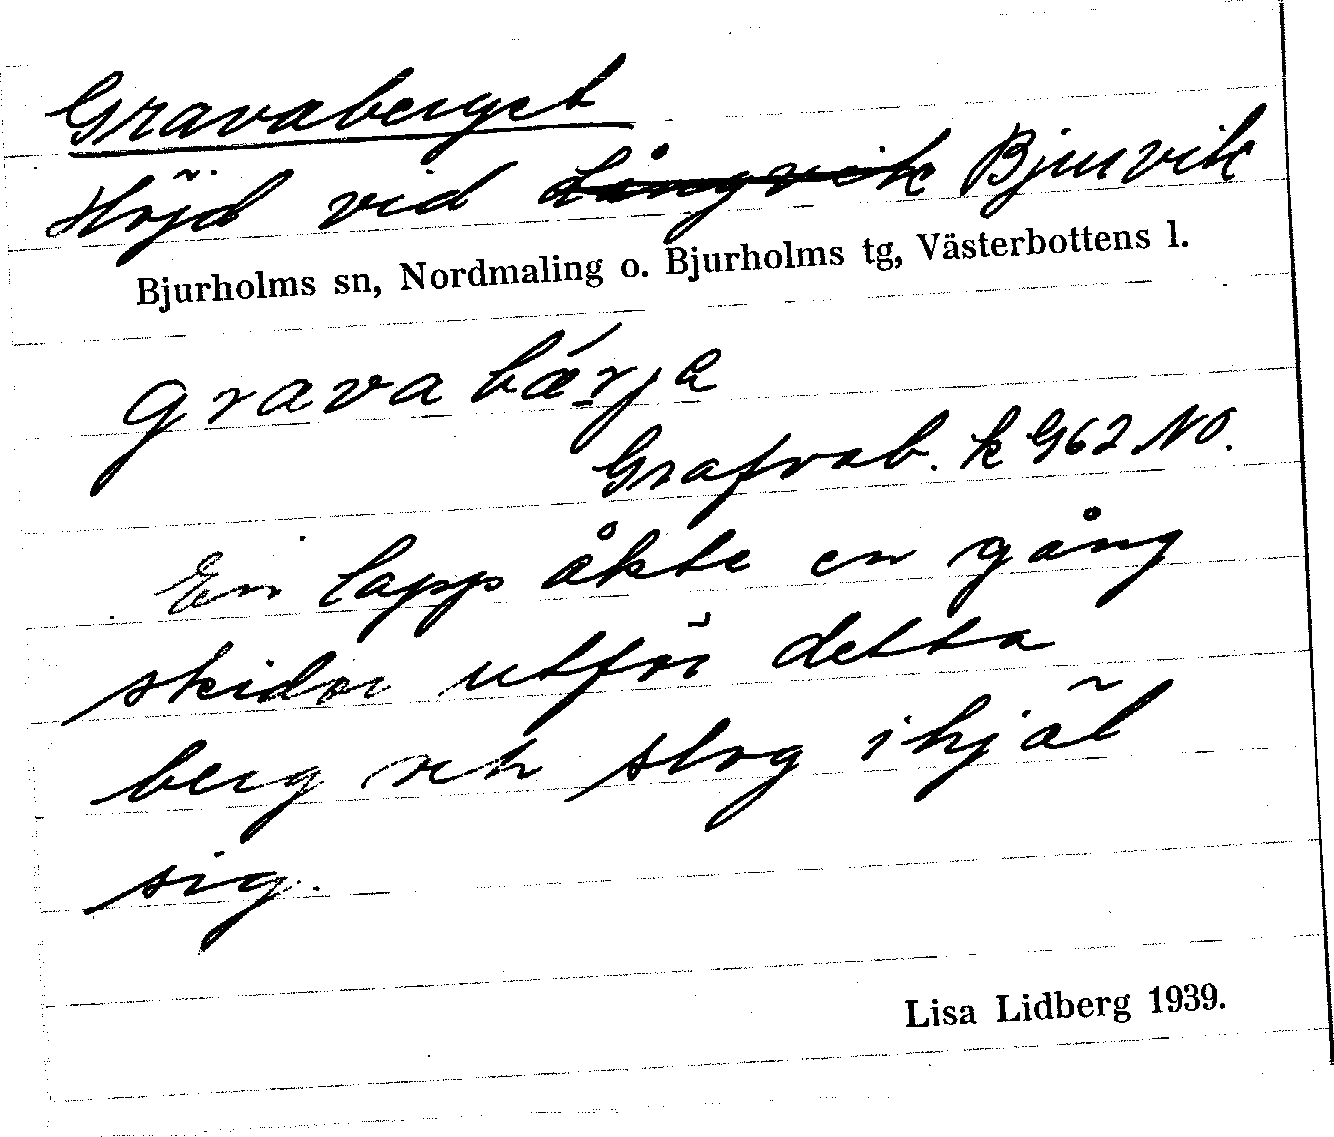 Gravaberget
Höjd vid Långvik Bjurvik
Bjurholms sn, Nordmaling o. Bjurholms tg, Västerbottens l.
gravabǽrjɑ
Grafvab. k G62 NO.
En lapp åkte en gång
skidor utför detta
berg och slog ihjäl
sig.
Lisa Lidberg 1939.